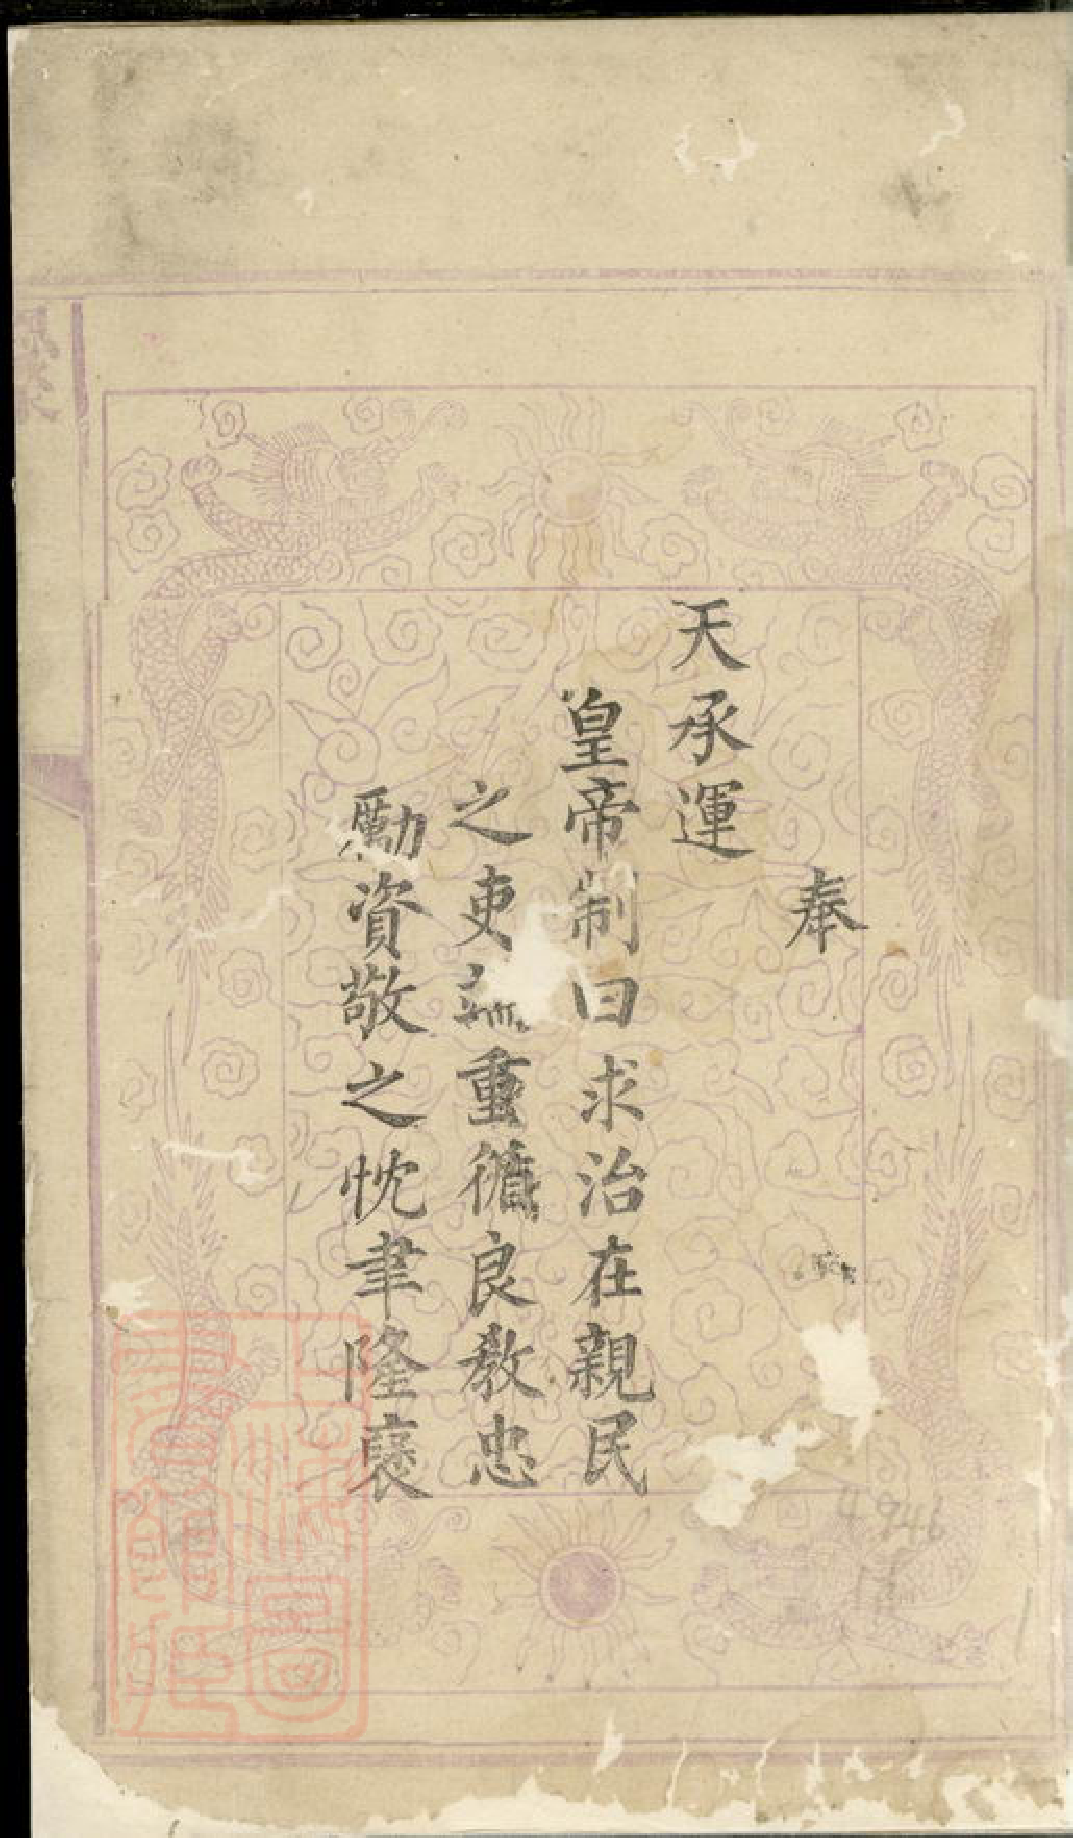 奉
天承運
皇帝制曰求治在親民
之吏端重循良教忠
勵資敬之忱聿隆褒
4946